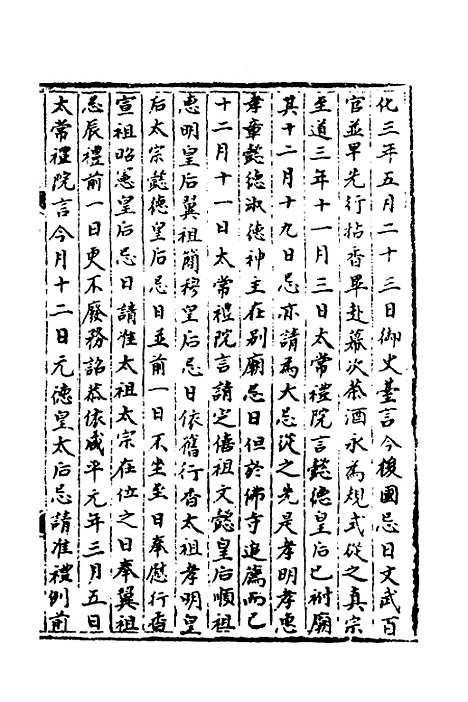 化三年五月二十三日御史臺言今後國忌日文武百
官並早先行拈香畢赴幕次茶酒永為規式從之真宗
至道三年十一月三日太常禮院言懿德皇后已祔廟
其十二月十九日忌亦請為大忌從之先是孝明孝惠
孝章懿德淑德神主在別廟忌日但於佛寺追薦而已
十二月十一日太常禮院言請定僖祖文懿皇后順祖
惠明皇后翼祖簡穆皇后忌日依舊行香太祖孝明皇
后太宗懿德皇后忌日並前一日不坐至日奉慰行香
宣祖昭憲皇后忌日請准太祖太宗在位之日奉翼祖
忌辰禮前一日更不廢務詔恭依咸平元年三月五日
太常禮院言今月十二日元德皇太后忌請准禮例前